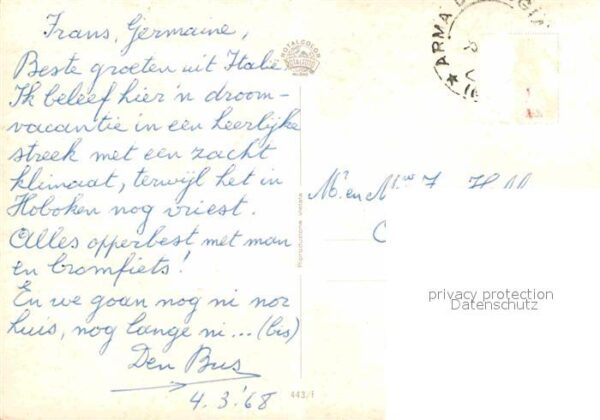 Frans, Germaine,
Beste groeten uit Italië
Ik beleef hier 'n droom-
vacantie in een heerlijke
streek met een zacht
klimaat, terwijl het in
Hoboken nog vriest.
Alles opperbest met man
en bromfiets!
En we goan nog ni nor
huis, nog lange ni... (bis)
Den Bus
4.3.'68
Mr. en Mevw F. H
ROTALCOLOR
Riproduzione vietata
443/F
ARMA D
GIA
privacy protection
Datenschutz